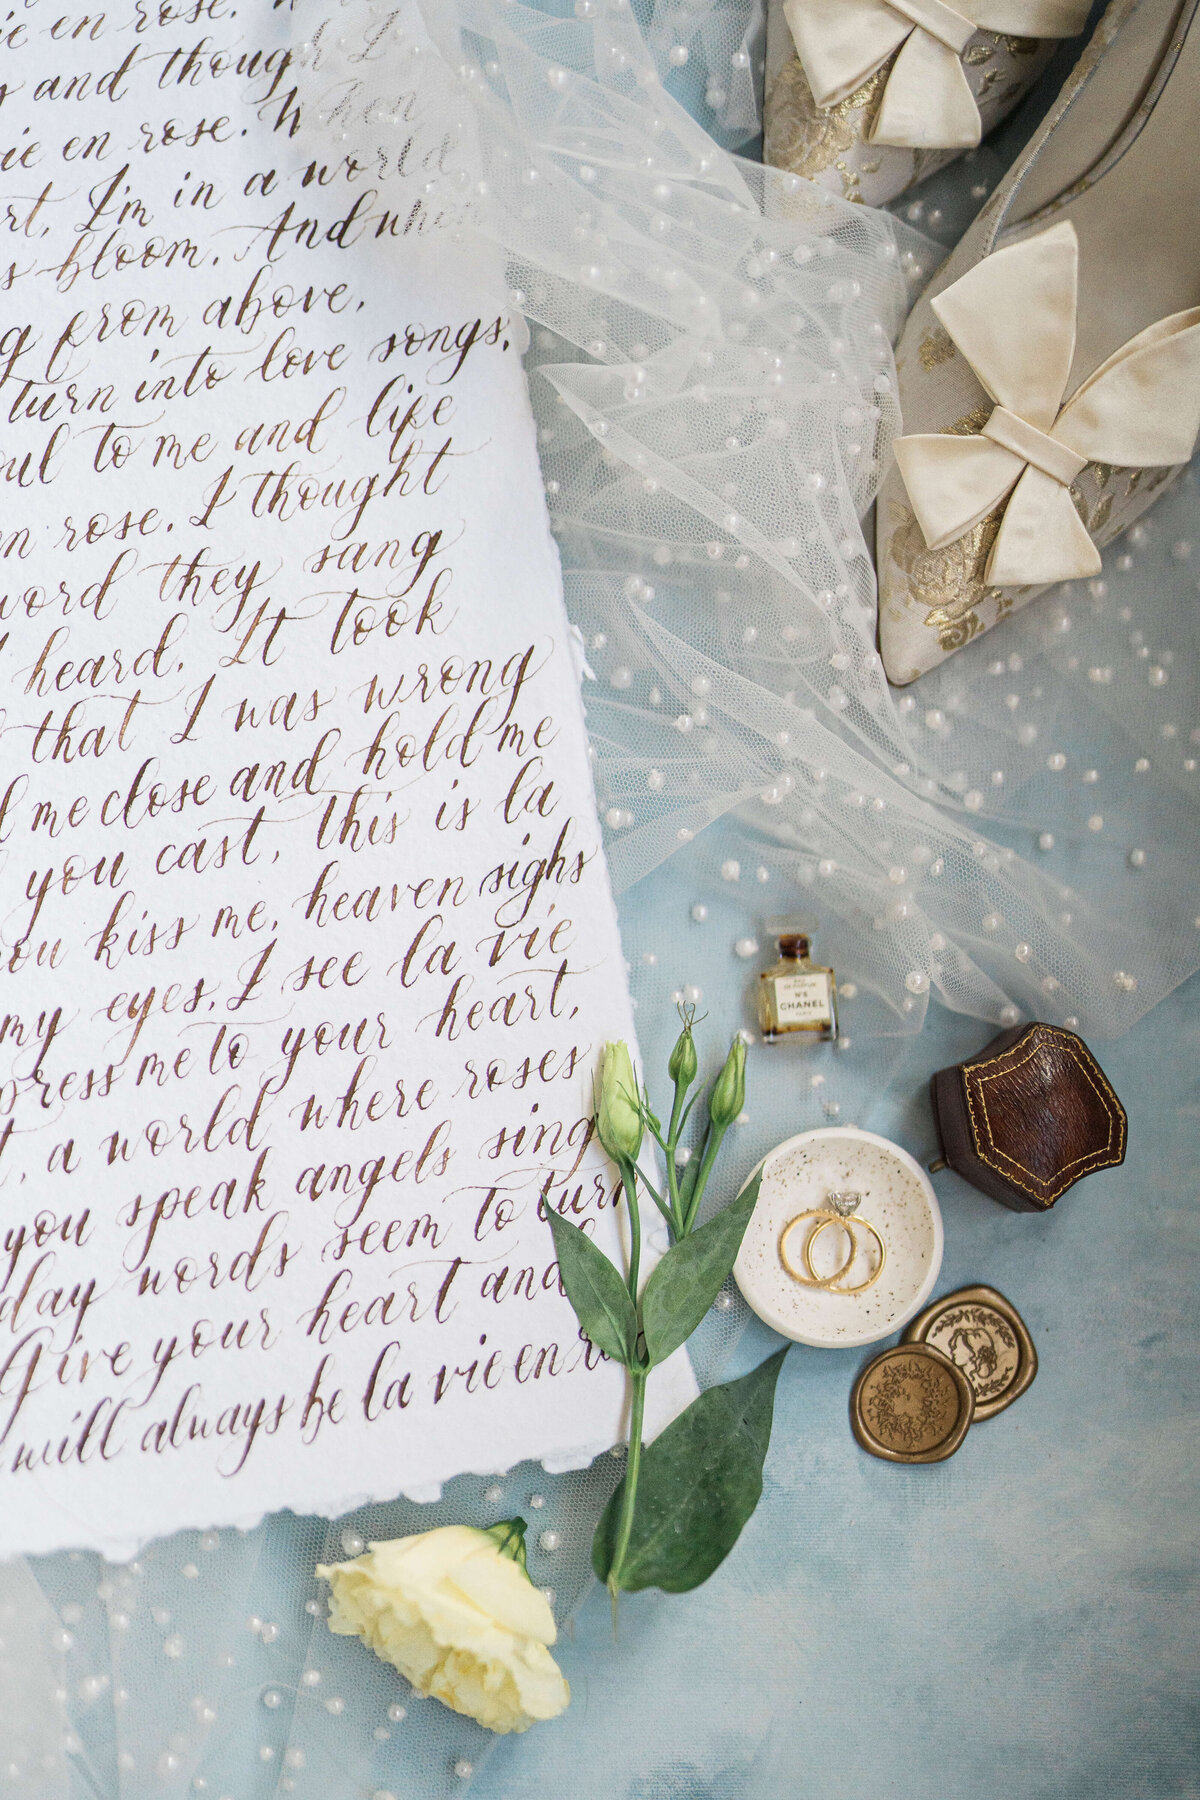 ie en rose.
and though I
ie en rose. When
rt, I'm in a world
s bloom. And when
g from above,
turn into love songs.
oul to me and life
n rose. I thought
word they sang
heard. It took
that I was wrong
l me close and hold me
you cast, this is la
ou kiss me, heaven sighs
my eyes, I see la vie
press me to your heart,
t, a world where roses
you speak angels sing
day words seem to turn
Give your heart and
will always be la vie en ro
N°5
CHANEL
PARIS